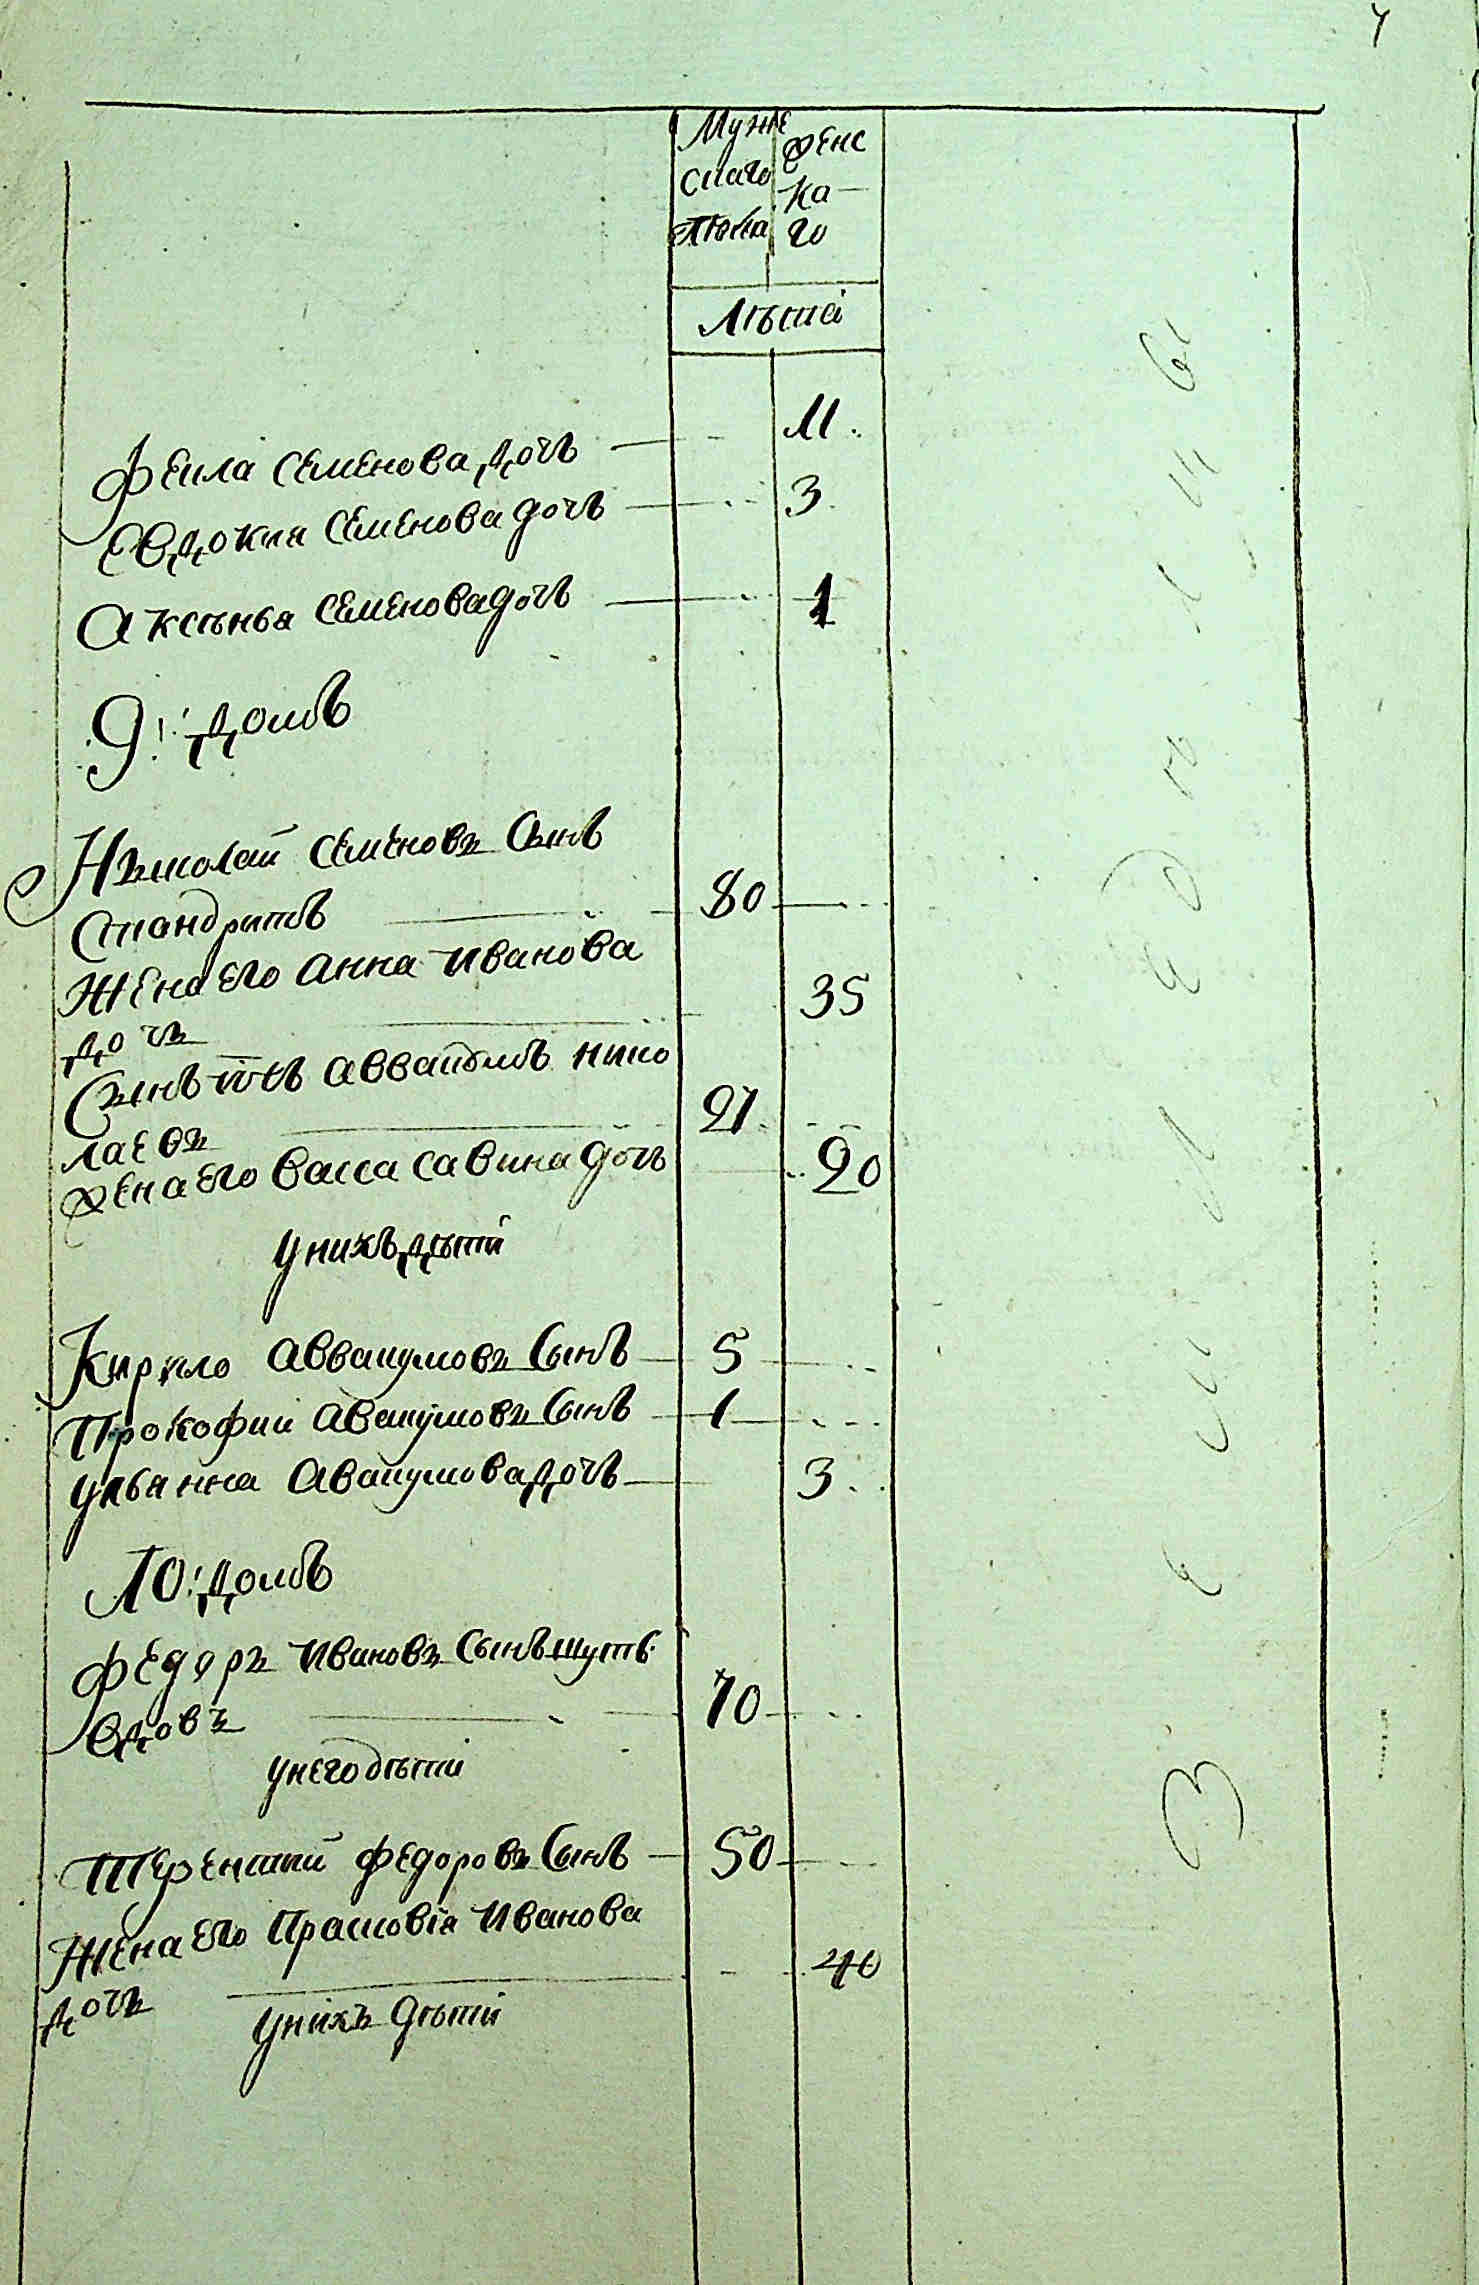 Муже
скаго
пола
женс
ка
го
Лѣта
Фекла Семенова дочь 11
Евдокия Семенова дочь 3
Аксѣнья Семенова дочь 1
9: домъ
Николай Семеновъ Сынъ
80
Жена его Анна Иванова
дочь 35
Сынъ ихъ Аввакумъ Нико
лаевъ 21
жена его Васса Савина дочь 20
у нихъ дѣти
Кирило Аввакумовъ Сынъ 5
Прокофии Авакумовъ Сынъ 1
Ульянна Авакумова дочь 3
10: домъ
Федоръ Ивановъ Сынъ
70
у него дѣти
Терентий Федоровъ Сынъ 50
Жена его Прасковiя Иванова
дочь 40
у нихъ дѣти
Земледельцы